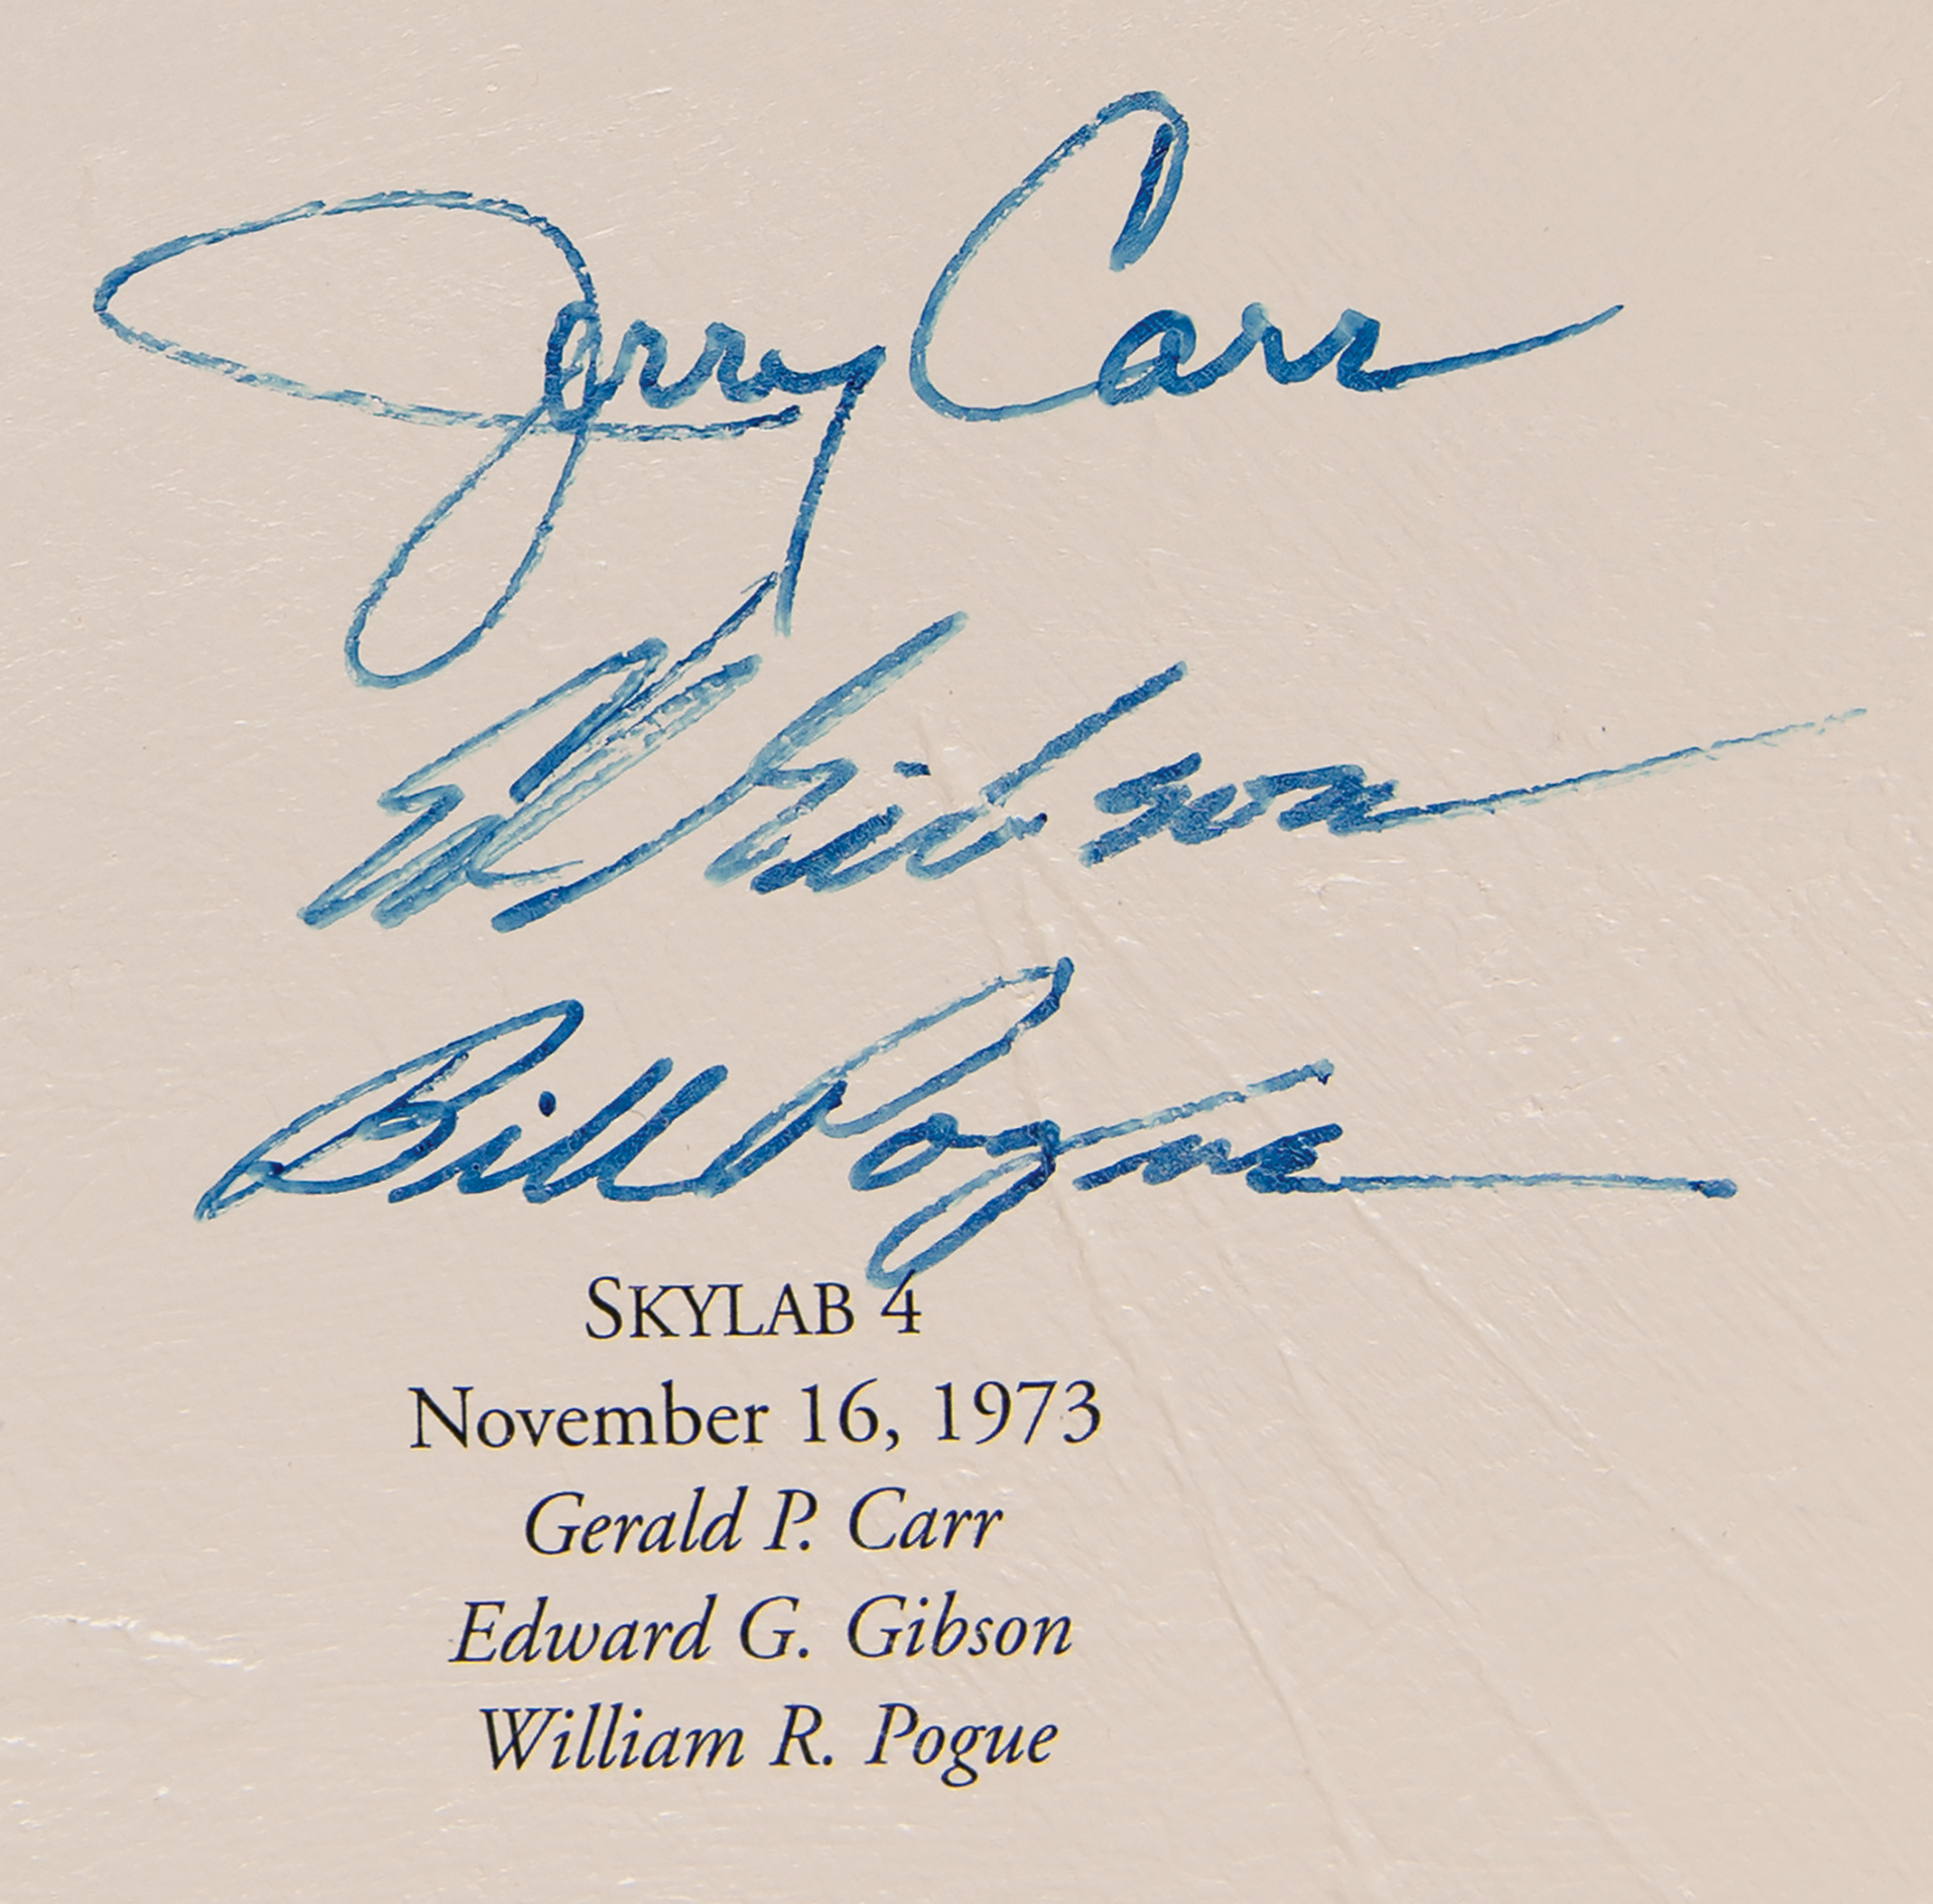 Jerry Carr
Ed Gibson
Bill Pogue
SKYLAB 4
November 16, 1973
Gerald P. Carr
Edward G. Gibson
William R. Pogue